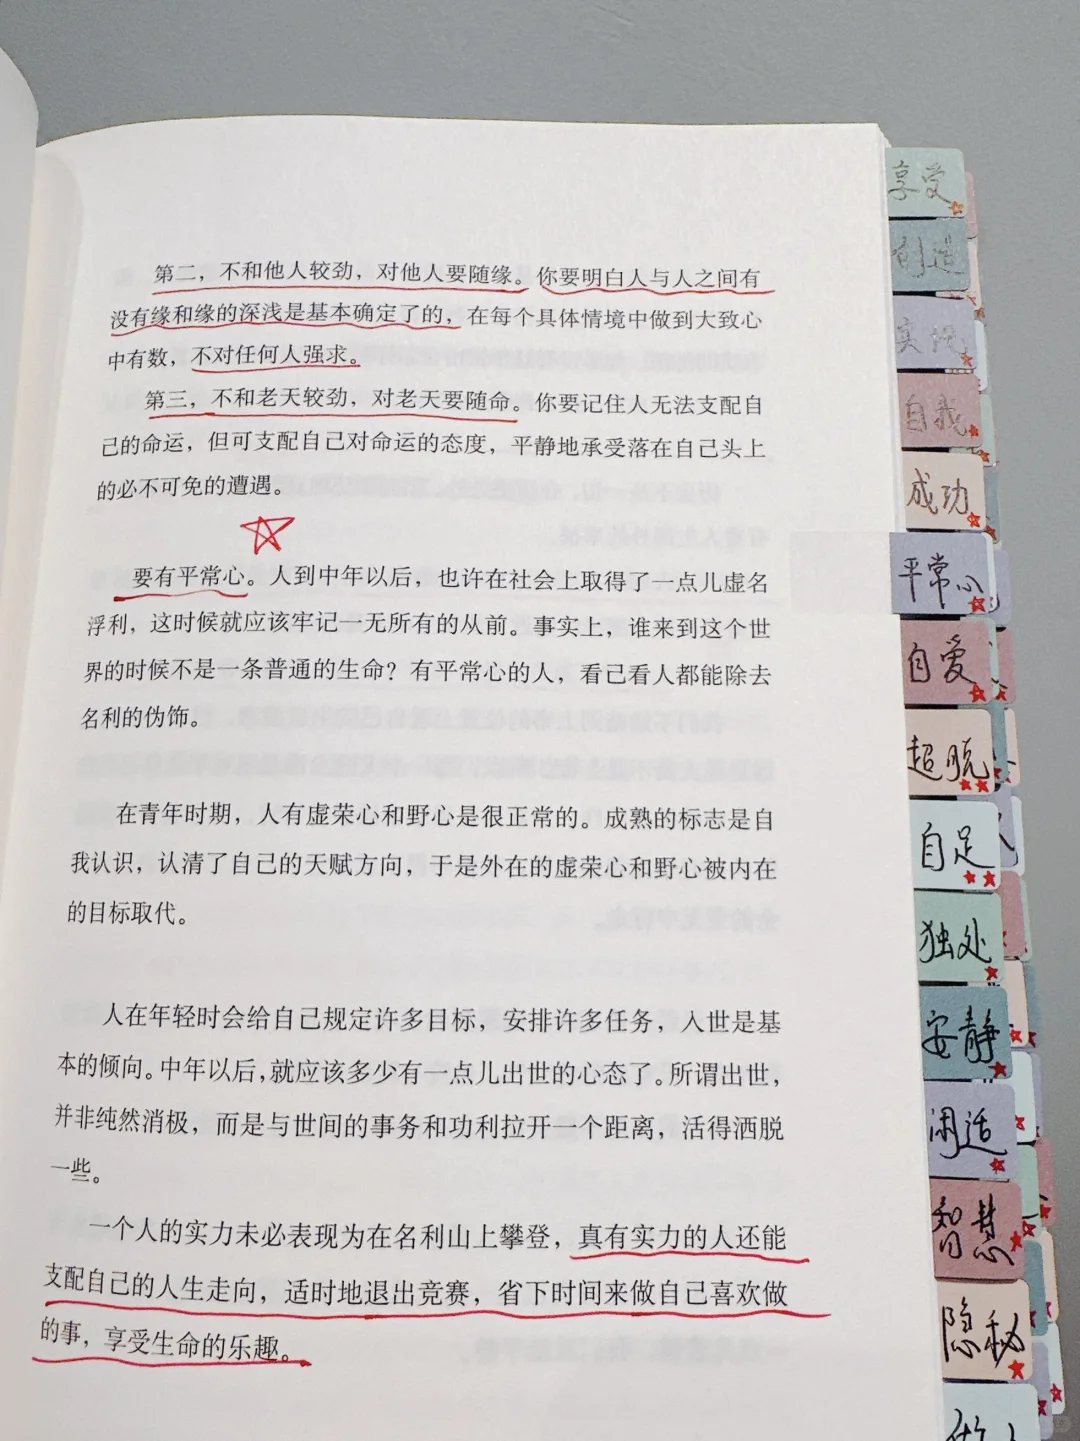 第二，不和他人较劲，对他人要随缘。你要明白人与人之间有
没有缘和缘的深浅是基本确定了的，在每个具体情境中做到大致心
中有数，不对任何人强求。
第三，不和老天较劲，对老天要随命。你要记住人无法支配自
己的命运，但可支配自己对命运的态度，平静地承受落在自己头上
的必不可免的遭遇。
要有平常心。人到中年以后，也许在社会上取得了一点儿虚名
浮利，这时候就应该牢记一无所有的从前。事实上，谁来到这个世
界的时候不是一条普通的生命？有平常心的人，看己看人都能除去
名利的伪饰。
在青年时期，人有虚荣心和野心是很正常的。成熟的标志是自
我认识，认清了自己的天赋方向，于是外在的虚荣心和野心被内在
的目标取代。
人在年轻时会给自己规定许多目标，安排许多任务，入世是基
本的倾向。中年以后，就应该多少有一点儿出世的心态了。所谓出世，
并非纯然消极，而是与世间的事务和功利拉开一个距离，活得洒脱
一些。
一个人的实力未必表现为在名利山上攀登，真有实力的人还能
支配自己的人生走向，适时地退出竞赛，省下时间来做自己喜欢做
的事，享受生命的乐趣。
享受
创造
自我
成功
平常心
自爱
超脱
自足
独处
安静
闲适
智慧
隐秘